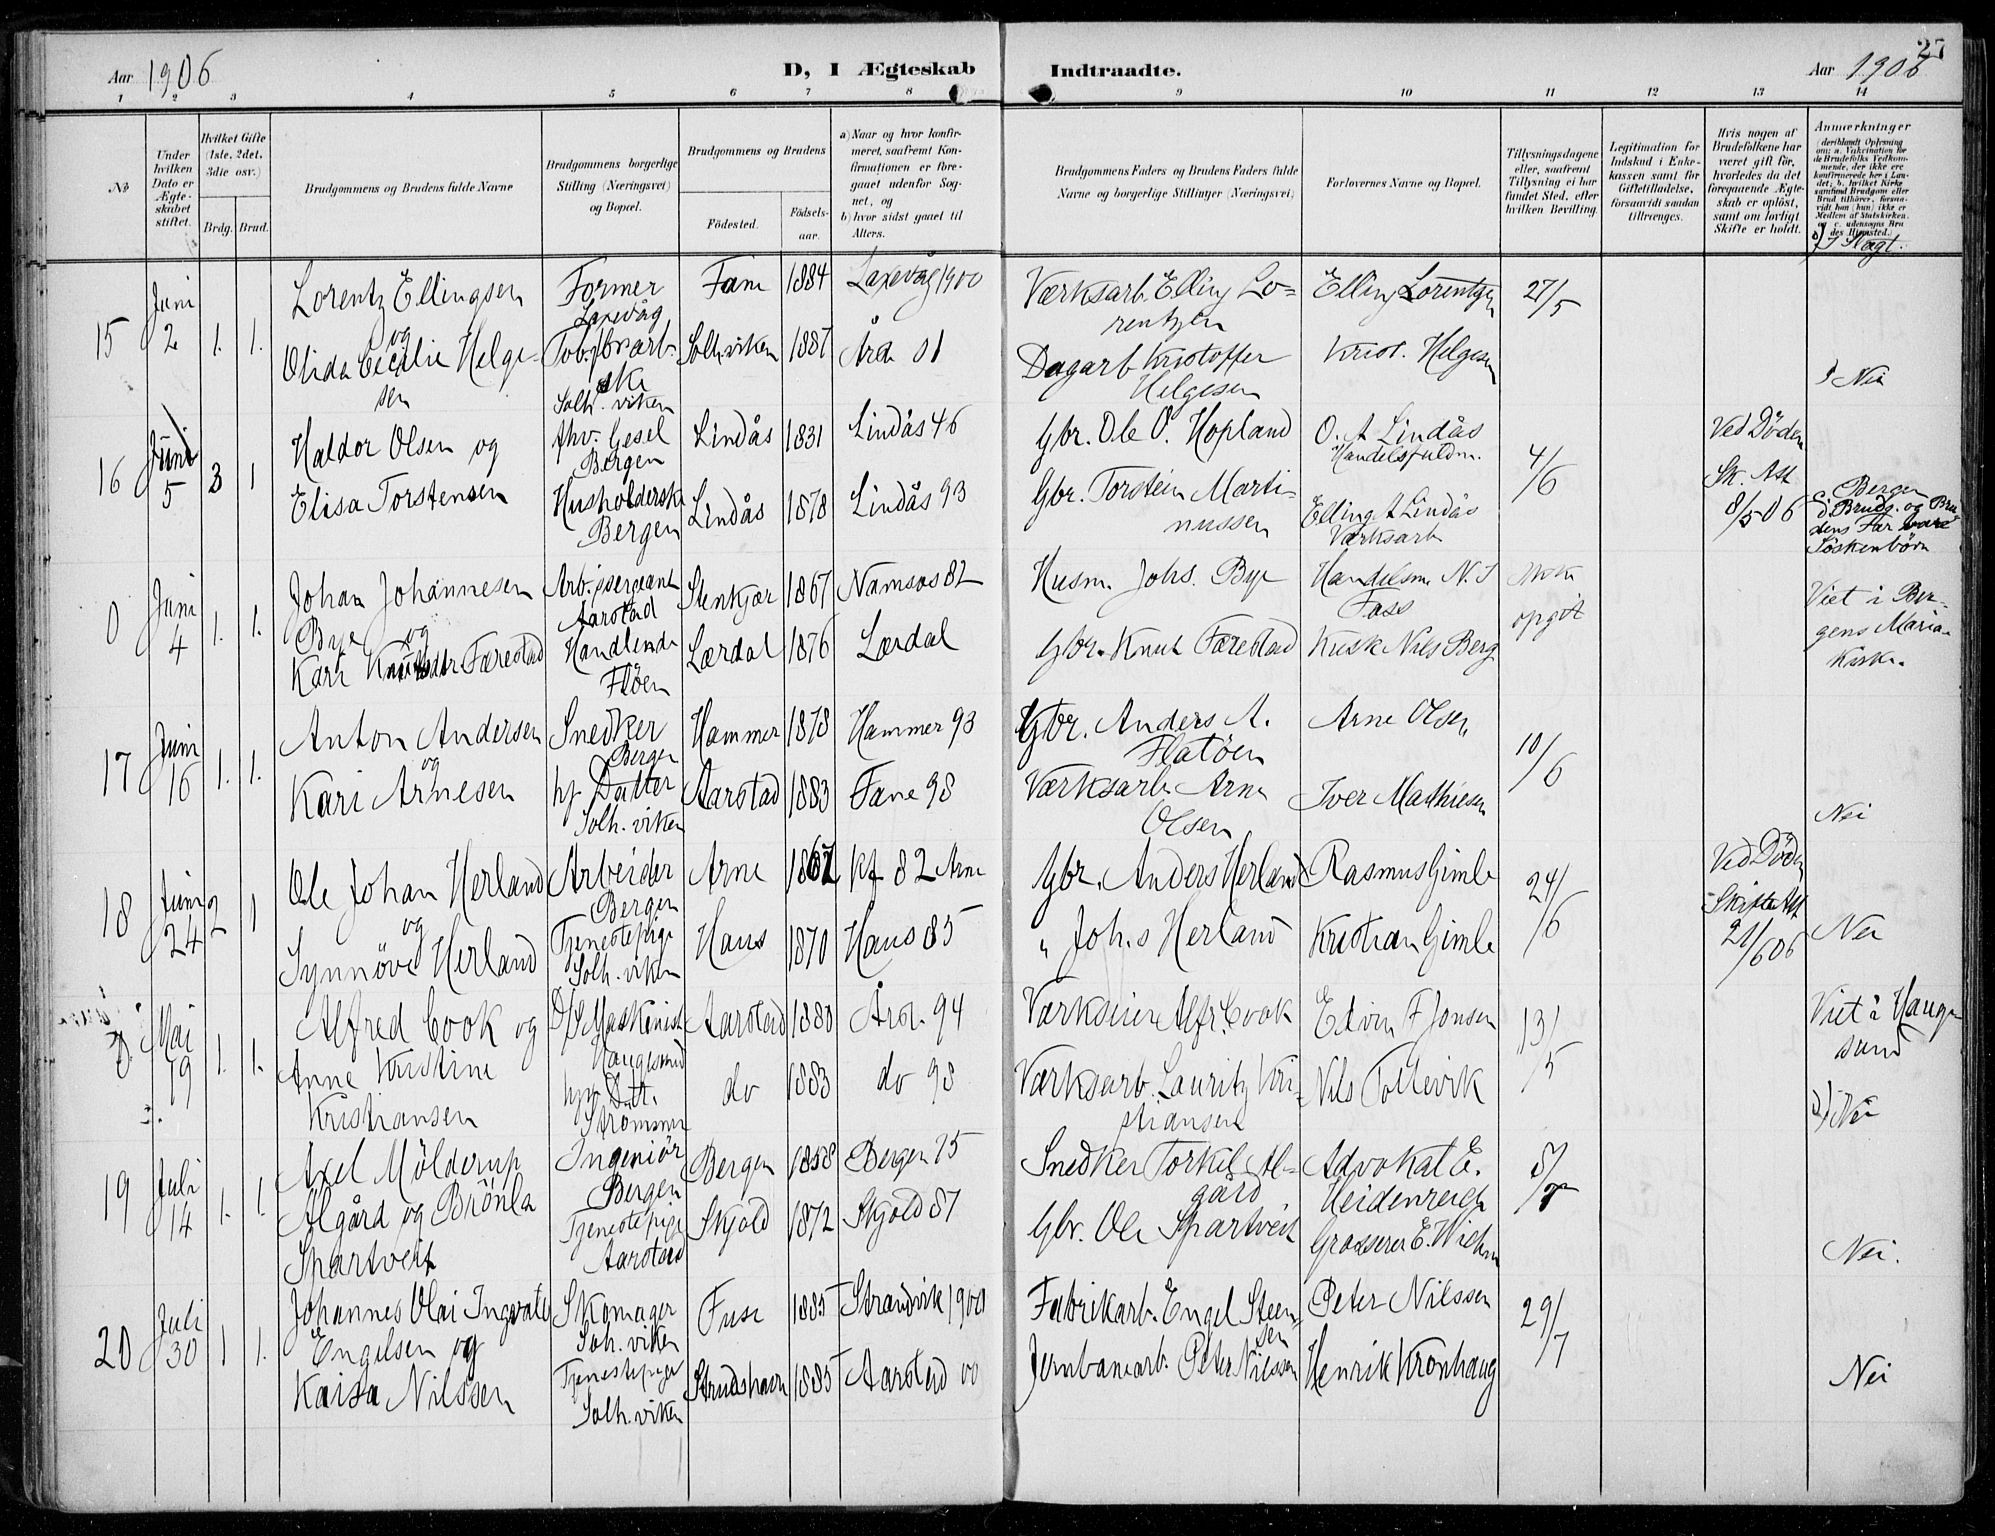 27
Aar 1906
D, I Ægteskab Indtraadte.
Aar 1906
1 2 3 4 5 6 7 8 9 10 11 12 13 14
No
Under hvilken Dato er Ægteskabet stiftet.
Hvilket Gifte (1ste, 2det, 3die osv.)
Brdg. Brud.
Brudgommens og Brudens fulde Navne
Brudgommens borgerlige Stilling (Næringsvei) og Bopæl.
Brudgommens og Brudens
Fødested.
Fødselsaar.
a) Naar og hvor konfirmeret, saafremt Konfirmationen er foregaaet udenfor Sognet, og
b) hvor sidst gaaet til Alters.
Brudgommens Faders og Brudens Faders fulde Navne og borgerlige Stillinger (Næringsvei)
Forlovernes Navne og Bopæl.
Tillysningsdagene eller, saafremt Tillysning ei har fundet Sted, efter hvilken Bevilling.
Legitimation for Indskud i Enkekassen samt for Giftetilladelse, forsaavidt saadan tiltrænges.
Hvis nogen af Brudefolkene har været gift før, hvorledes da det foregaaende Ægteskab er opløst, samt om lovligt Skifte er holdt.
Anmærkninger
d) I Slægt.
15 Juni 2 1. 1.
Lorentz Ellingsen Former Laxevåg Fane 1884 Laxevåg 1900 Værksarb. Elling Lorentzen Elling Lorentzen 27/5
og
Olida Cecilie Helgesen Solh.viken Solh.viken 1887 Årst 01 Dagarb Kristoffer Helgesen Krist. Helgesen Nei
16 Juni 5 3 1
Haldor Olsen og Bergen Lindås 1831 Lindås 46 Gbr. Ole O. Hopland O. A Lindås Handelsfuldm. 4/6 Ved Døden
Elisa Torstensen Husholderske Bergen Lindås 1878 Lindås 93 Gbr. Torstein Martinussen Elling A Lindås Værksarb Sk. Att 8/5 06 c. Bergen
d. Brudg. og Brudens Far Søskenbörn
0 Juni 4 1. 1.
Johan Johannesen Bye og Aarstad Stenkjær 1867 Namsos 82 Husm. Johs. Bye Handelsm. N. J Foss opgit Viet i Bergens Mariakirke.
Kari Færestad Handlende Fløen Lærdal 1876 Lærdal Gbr. Knut Færestad Kusk Nils Berg
17 Juni 16 1. 1.
Anton Andersen Snedker Bergen Hammer 1878 Hammer 93 Gbr. Anders A. Flatöen Arne Olsen 10/6
og
Kari Arnesen hj Datter Solh.viken Aarstad 1883 Fane 98 Værksarb. Arne Olsen Iver Mathiesen Nei
18 Juni 24 2 1
Ole Johan Herland Arbeider Bergen Arne kf 82 Arne Gbr. Anders Herland Rasmus Gimle 24/6 Ved Döden
og
Synnöve Herland Tjenestepige Solh.viken Haus 1870 Haus 85 " Joh.s Herland Kristian Gimle Skifte Att 21/6 06 Nei
0 Mai 19 1. 1.
Alfred Cook og D/S Maskinist Haugesund Aarstad 1880 Årst. 94 Værkseier Alfr. Cook Edvin F Jonsen 13/5 Viet i Haugesund
Anne Kristine Kristiansen hj. Dat. Strömmen do 1883 do 98 Værksarb. Lauritz Kristiansen Nils Tollevik d) Nei
19 Juli 14 1. 1.
Axel Mölderup Ålgård og Ingeniör Bergen Bergen 1858 Bergen 75 Snedker Torkel Ålgård Advokat E. Heidenreich 8/7
Brönla Spartveit Tjenestepige Aarstad Skjold 1872 Skjold 87 Gbr. Ole Spartveit Grosserer E. Nei.
20 Juli 30 1 1.
Johannes Olai Ingvald Engelsen og Skomager Solh.viken Fuse 1885 Strandvik 1900 Fabrikarb. Engel Steensen Peter Nilssen 29/7
Kaisa Nilssen Tjenestepige Solh.viken 1885 Aarstad 00 Jernbanearb. Peter Nilssen Henrik Kronhaug Nei